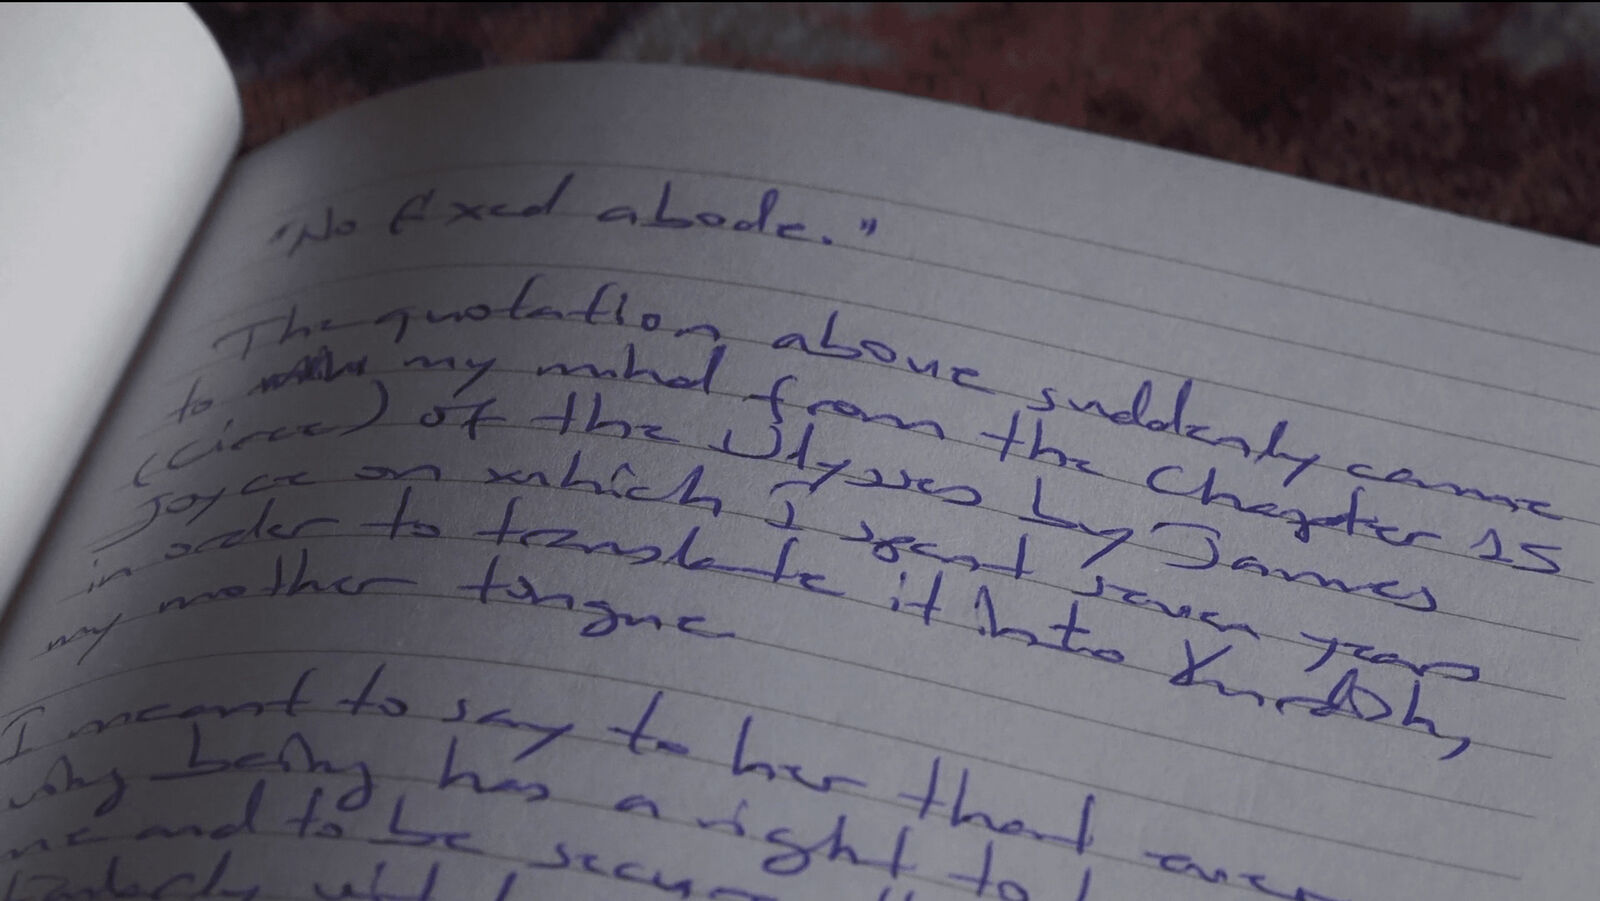 "No fixed abode."
The quotation above suddenly came
to my mind from the Chapter 15
(Circe) of the Ulysses by James
Joyce on which I spent seven years
in order to translate it into Kurdish,
my mother tongue
I meant to say to her that every
being has a right to
and to be